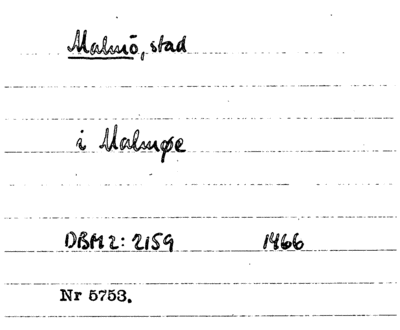 Malmö, stad
i Malmøe
DBM 2: 2159 1466
Nr 5753.